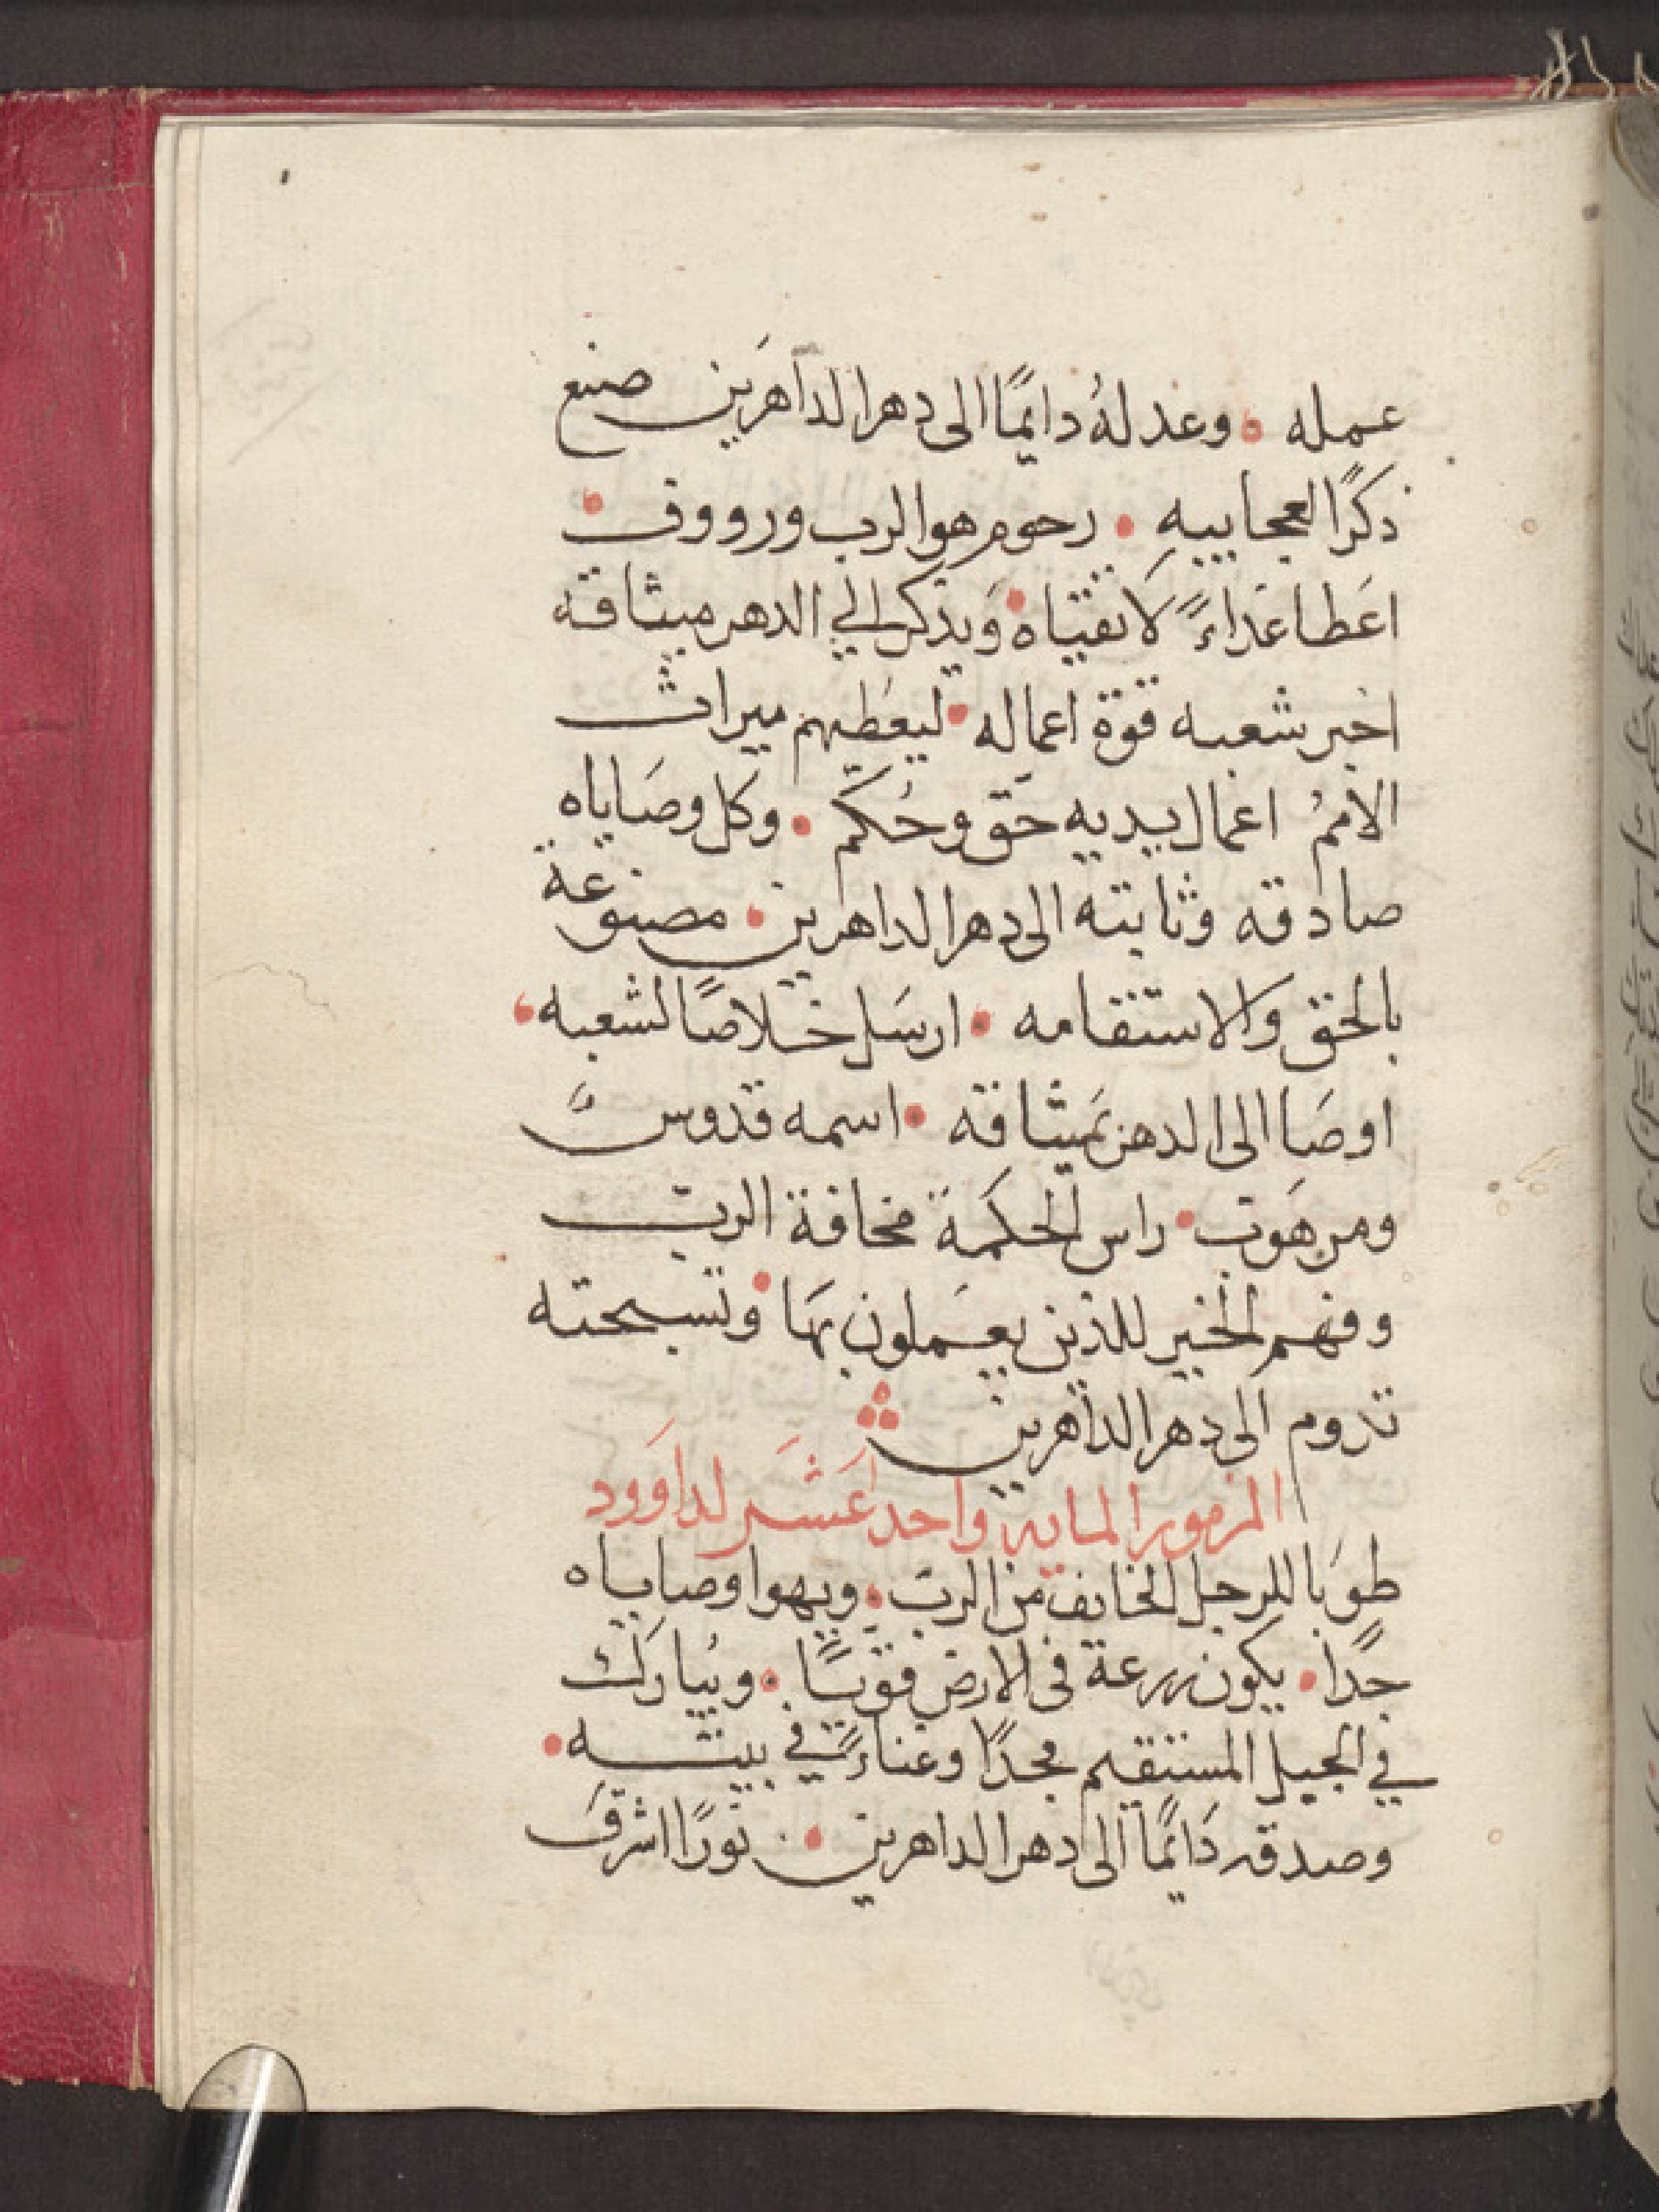 عمله • وعدلهُ دايمًا الى دهر الداهرَين صنع
ذكرًا لعجاييبهِ • رحوم هو الرب ورووف •
اعَطا غداءً لاتقياه • وَيدكر الي الدهر ميثاقه
اخبر شعبه قوة اعماله • ليعَطيهم ميراث
الاممُ اعمال يديه حَق وحُكم • وكل وصَاياه
صادقه وثابته الى دهر الداهرين • مصنوعة
بالحق وَالاستقامه • ارسَل خلاصًا لشعبه •
اوصَا الى الدهر بميثاقه • اسمه قدوسً
ومرهَوب • راس الحكمَة مخافة الرب
وفهم الخير للذين يعَملون بهَا • وتسبحته
تدوم الى دهر الداهرين
المزمور الماية واحد عَشَر لداوَود
طوَبا للرجل الخايف من الرب • ويهوا وصاياه
جدًا • يكون زرعة فى الارض قويًا • ويُبارَك
في الجيل المستقيم مجدًا وغناءًَ في بيته •
وصدقه دَايمًا الى دهر الداهرين • نورًا اشرقَ